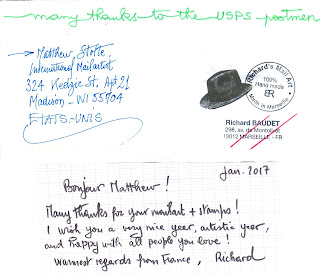 many thanks to the USPS postmen
Matthew Stolte
International Mailartist
324 Kedzie St, Apt 21
Madison - WI 53704
ETATS-UNIS
Richard's Mail Art
100%
Hand made
BR
Made in Marseille
Richard BAUDET
298, av. de Montolivet
13012 MARSEILLE - FR
Jan. 2017
Bonjour Matthew !
Many thanks for your mailart + stamps !
I wish you a very nice year, artistic year,
and happy with all people you love !
Warmest regards from France, Richard